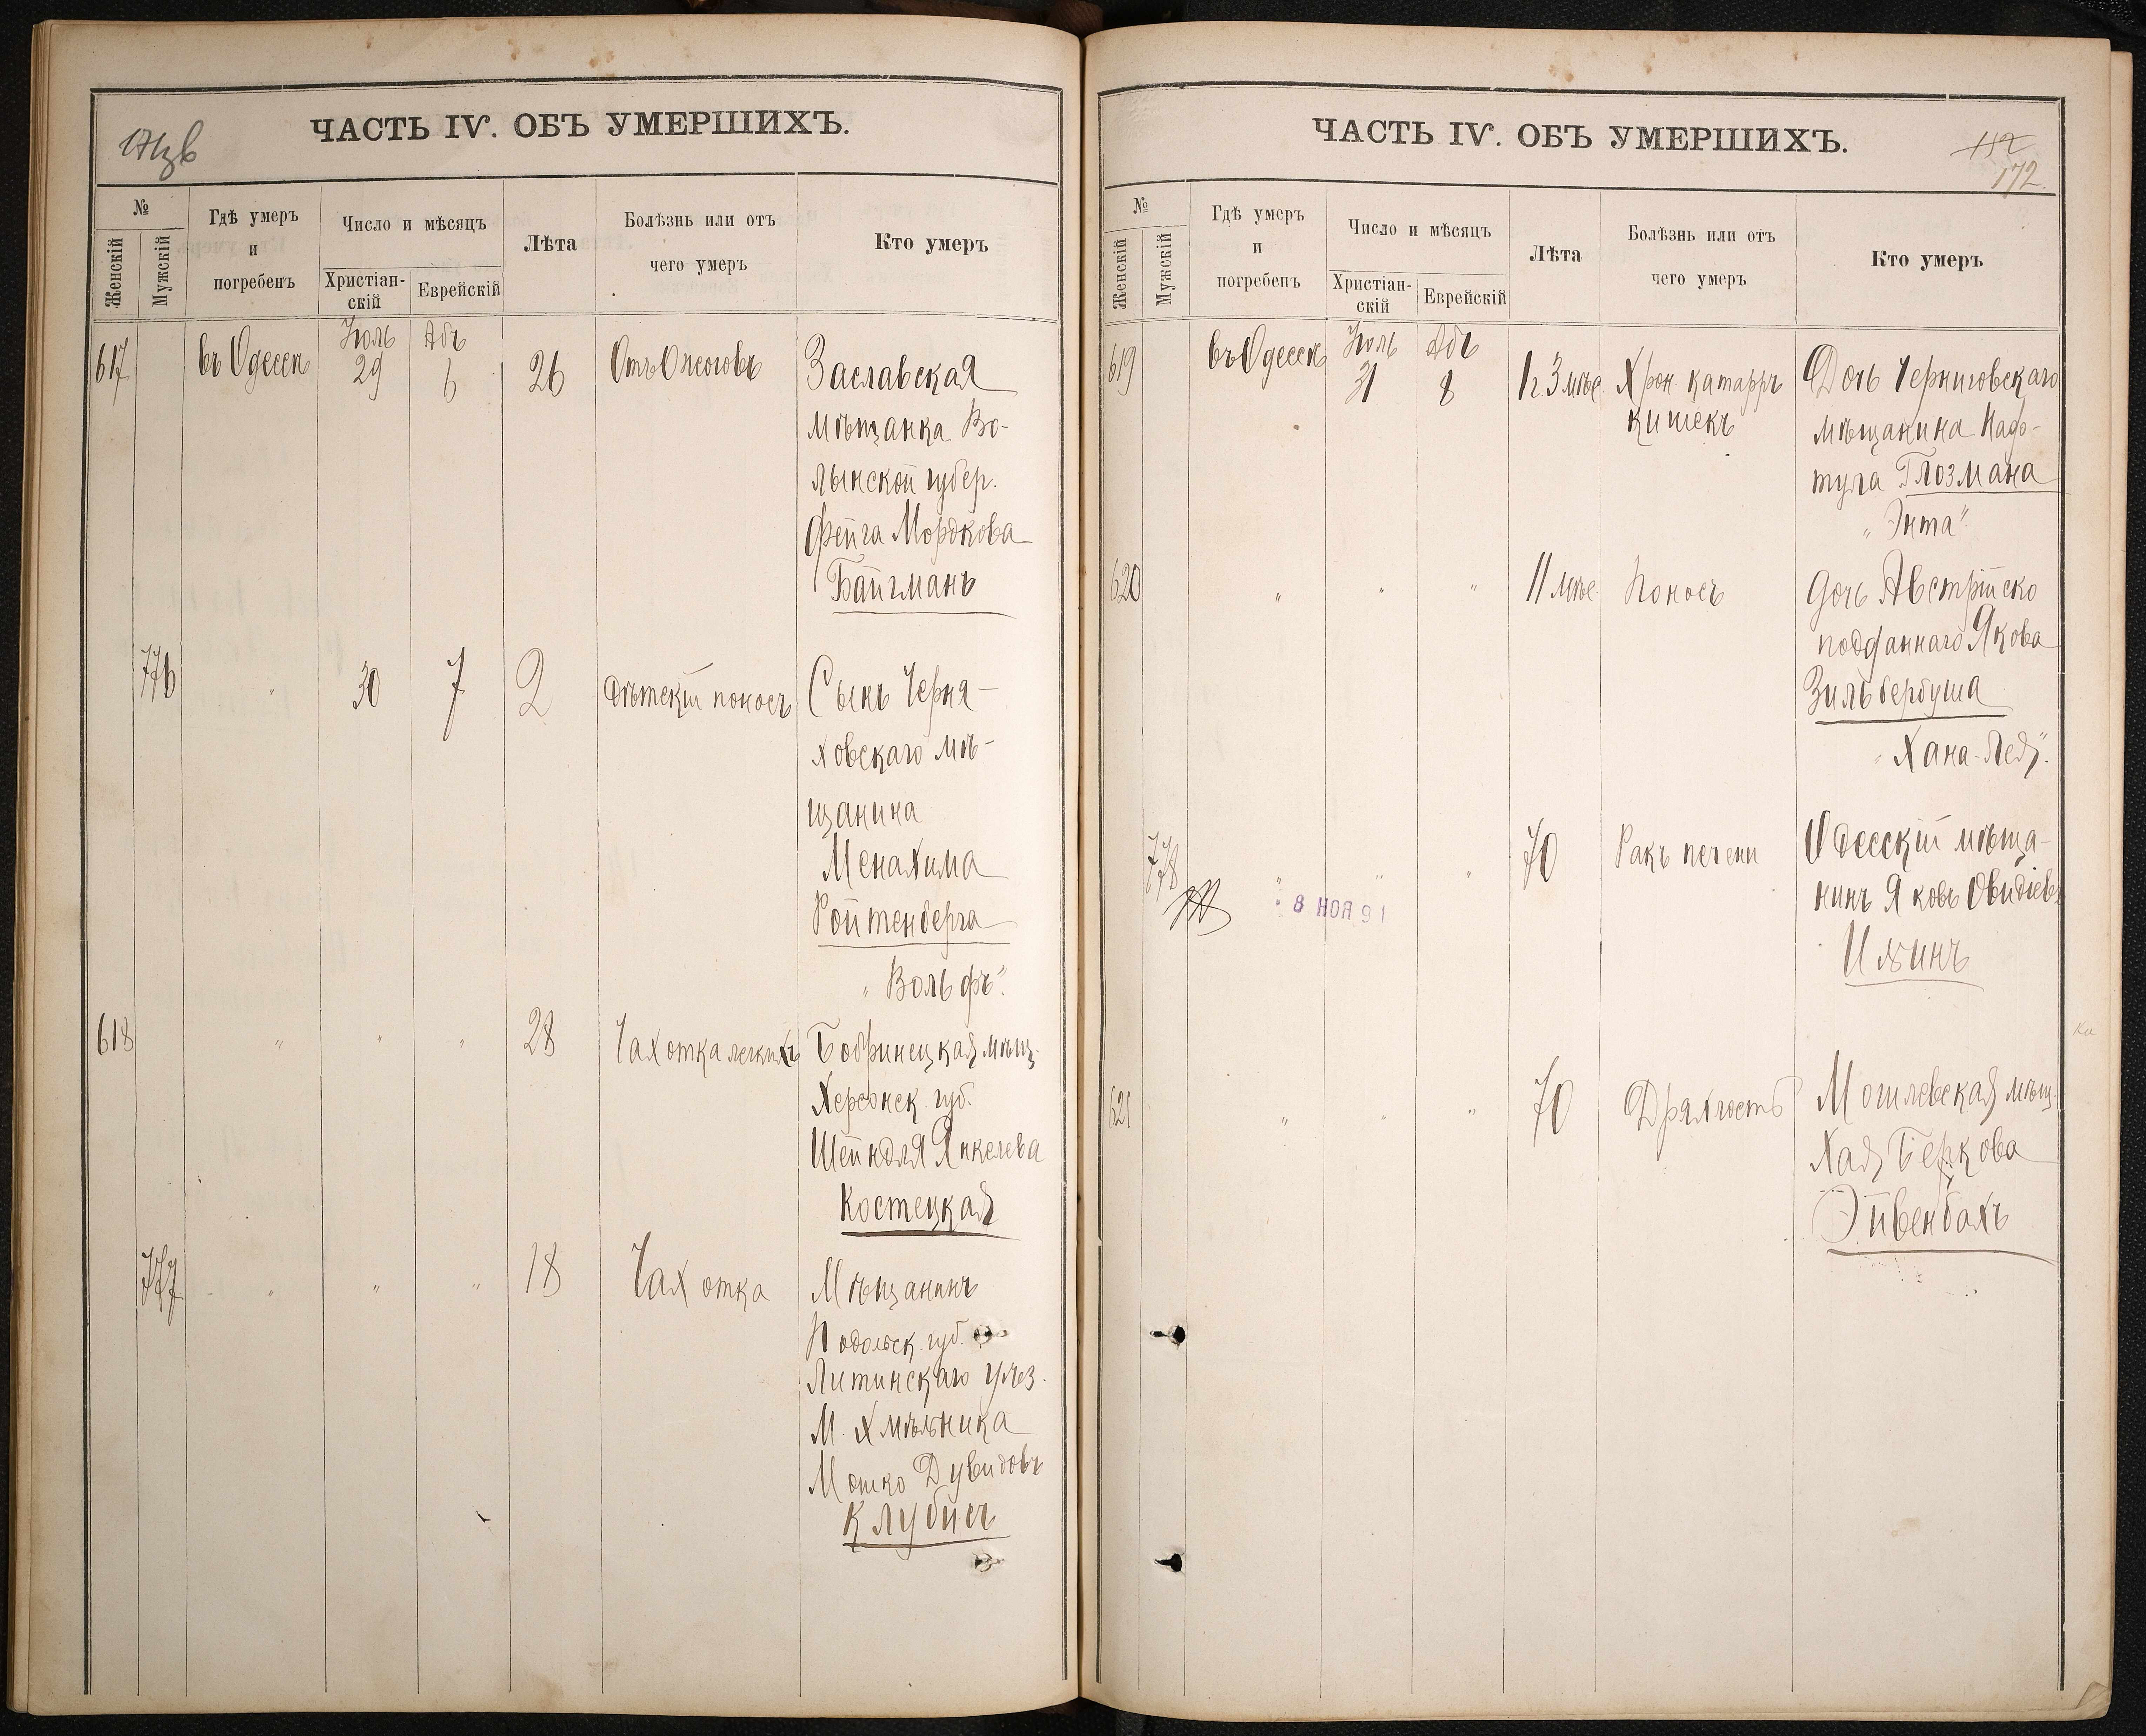 171зв
ЧАСТЬ IV. ОБЪ УМЕРШИХЪ.
№
Женскій
Мужскій
Гдѣ умеръ
и
погребенъ
Число и мѣсяцъ
Христіан-
скій
Еврейскій
Лѣта
Болѣзнь или отъ
чего умеръ
Кто умеръ
Іюль Абъ
617 въ Одессѣ 29 6 26 Отъ Ожоговъ Заславская
мѣщанка Во-
лынской губер.
Фейга Мордкова
Байгманъ
776 " 30 7 2 Дѣтскій поносъ Сынъ Черня-
ховскаго мѣ-
щанина
Менахима
Ройтенберга
"Вольфъ".
618 " " " 28 Чахотка легкихъ Бобринецкая мѣщ.
Херсонск. губ.
Шейндля Янкелева
Костецкая
777 " " " 18 Чахотка Мѣщанинъ
Подольск. губ.
Литинскаго уѣз.
М. Хмѣльника
Мошко Дувидовъ
Клубисъ
ЧАСТЬ IV. ОБЪ УМЕРШИХЪ.
182
172.
№
Женскій
Мужскій
Гдѣ умеръ
и
погребенъ
Число и мѣсяцъ
Христіан-
скій
Еврейскій
Лѣта
Болѣзнь или отъ
чего умеръ
Кто умеръ
Іюль Абъ
619 въ Одессѣ 31 8 1 г. 3 мѣс. Хрон. катарръ Дочь Черниговскаго
кишекъ мѣщанина Наф-
тула Глозмана
"Энта"
620 " " " 11 мѣс. Поносъ дочь Австрійско
подданнаго Якова
Зильбербуша
"Хана-Лея".
778 " " " 70 Ракъ печени Одесскій мѣща-
нинъ Яковъ Овидіевъ
8 НОЯ 91
621 " " " 70 Дряхлость Могилевская мѣщ.
Хая Беркова
Эйвенбахъ